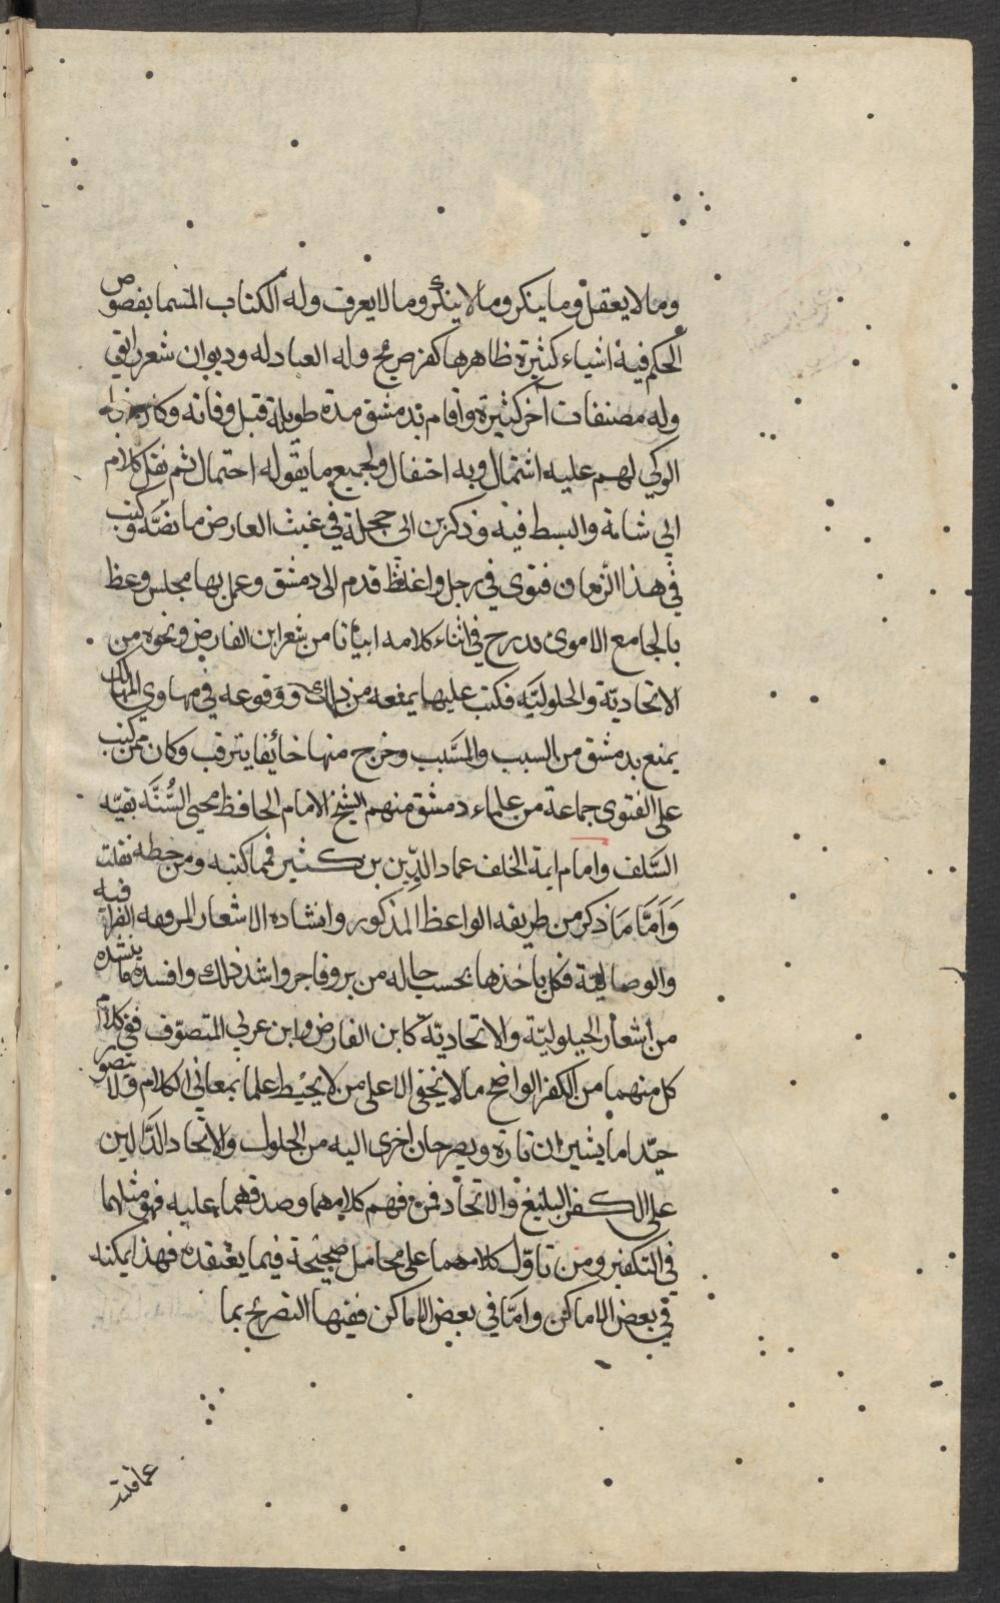 وما لا يعقل وما ينكر وما لا ينكر وما لا يعرف وله الكتاب المسما بفصوص
الحكم فيه اشياء كثيرة ظاهرها كفر صريح وله العبادله وديوان شعر رايق
وله مصنفات آخر كثيرة واقام بدمشق مدة طويلة قبل وفاته وكان بنوا
الزكي لهم عليه اشتمال وبه احتفال ولجميع ما يقوله احتمال ثم نقل كلام
ابي شامة والبسط فيه وذكر بن ابى حجلة في غيث العارض ما نصّه وكتب
في هذا الزمان فتوى في رجل واعظ قدم الى دمشق وعمل بها مجلس وعظ
بالجامع الاموى يدرج في اثناء كلامه ابياتا من شعر ابن الفارض ونحوه من
الاتحاديّة والحلوليّه فكتب عليها بمنعه من ذلك ووقوعه في مهاوي المهالك
يمنع بدمشق من السبب والمسَّبب وخرج منها خائفا يترقب وكان ممن كتب
على الفتوى جماعة من علماء دمشق منهم الشيخ الامام الحافظ محيى السُّنَّه بقيّه
السَّلف وامام ايمة الخلف عماد الدِّين بن كثير فمما كتبه ومن خطه نقلت
وَاَمَّا مَا ذكر من طريقه الواعظ المذكور وانشاده الاشعار المرققه الفراقيه
والوصاليّة فكل ياخذها بحسب حاله من بر وفاجر واشد ذلك وافسده ما ينشده
من اشعار الحلوليّة والاتحاديّة كابن الفارض وابن عربي المتصوّف ففي كلام
كل منهما من الكفر الواضح ما لا يخفى الا على من لا يحيط علما بمعاني الكلام ولا يتصور
جيّدا ما يشيران تارة ويصرحان اخرى اليه من الحلول والاتحاد الدَّالين
على الكفر البليغ والاتحاد فمن فهم كلامهما وصدقهما عليه فهو مثلهما
في التكفير ومن تاوّل كلامهما على محامل صحيحة فيما يعتقده فهذا يمكنه
في بعض الاماكن وامّا في بعض الاماكن ففيها التصريح بما